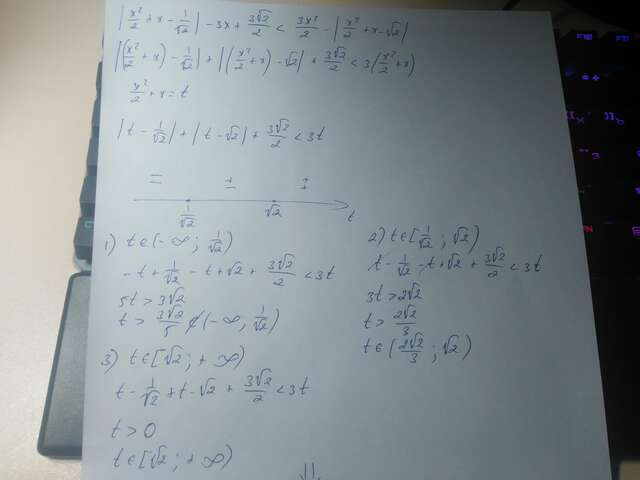 |x²/2 + x - 1/√2| - 3x + 3√2/2 < 3x²/2 - |x²/2 + x - √2|
|(x²/2 + x) - 1/√2| + |(x²/2 + x) - √2| + 3√2/2 < 3(x²/2 + x)
x²/2 + x = t
|t - 1/√2| + |t - √2| + 3√2/2 < 3t
1/√2 √2 t
1) t ∈ (-∞; 1/√2)
-t + 1/√2 - t + √2 + 3√2/2 < 3t
5t > 3√2
t > 3√2/5 ∉ (-∞; 1/√2)
2) t ∈ [1/√2; √2)
t - 1/√2 - t + √2 + 3√2/2 < 3t
3t > 2√2
t > 2√2/3
t ∈ (2√2/3; √2)
3) t ∈ [√2; +∞)
t - 1/√2 + t - √2 + 3√2/2 < 3t
t > 0
t ∈ [√2; +∞)
⇓